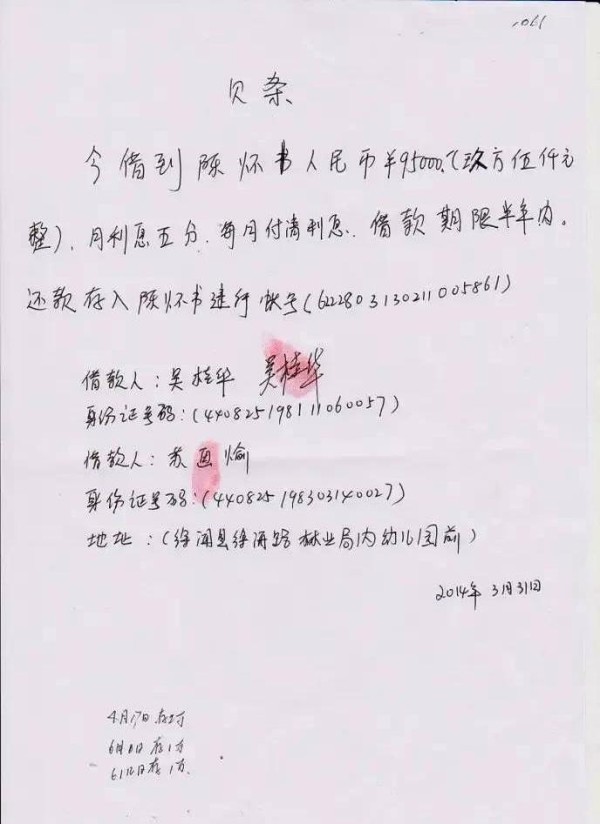 1061
贝条
今借到陈怀书人民币¥95000.(玖万伍仟元
整)、月利息五分、每月付清利息、借款期限半年内。
还款存入陈怀书建行帐号(6228031302110058​61)
借款人:吴桂华 吴桂华
身份证号码:(440825198111060057)
借款人:苏画愉
身份证号码:(440825198303140027)
地址:(徐闻县徐海路林业局内幼儿园前)
2014年3月31日
4月17日存2万
6月1日存1万
6月12日存1万.